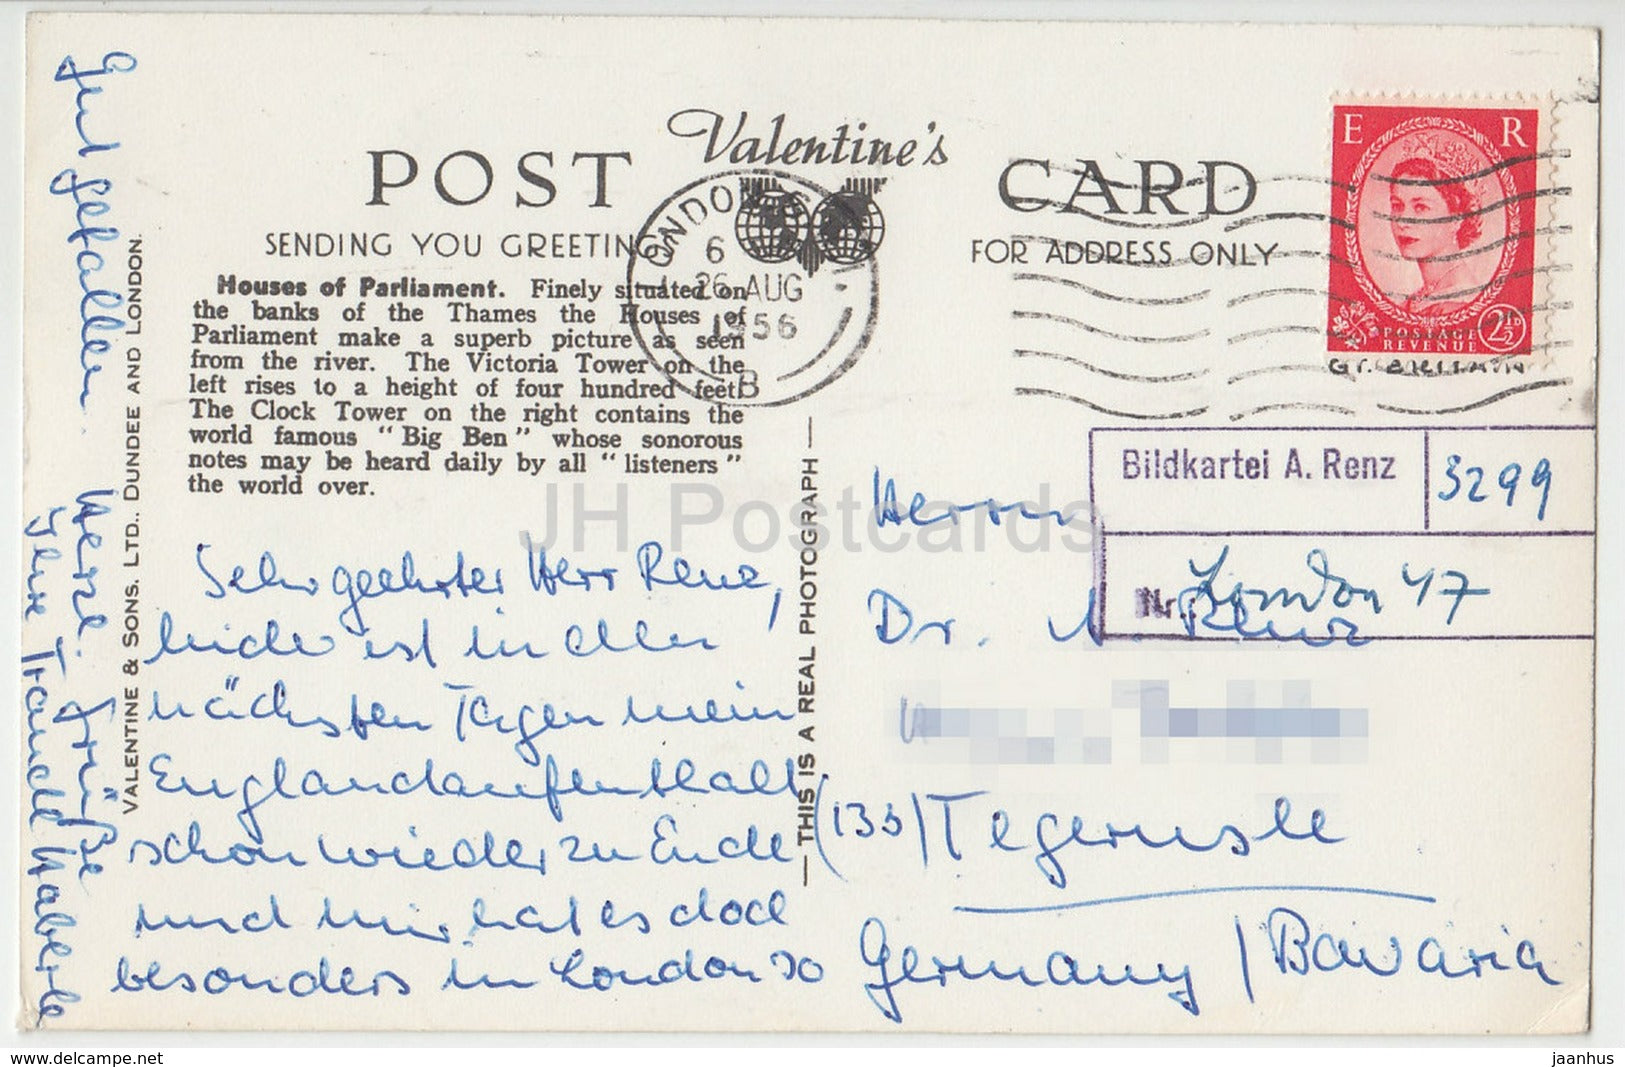 Valentine's
POST CARD
SENDING YOU GREETINGS
FOR ADDRESS ONLY
Houses of Parliament. Finely situated on
the banks of the Thames the Houses of
Parliament make a superb picture as seen
from the river. The Victoria Tower on the
left rises to a height of four hundred feet.
The Clock Tower on the right contains the
world famous "Big Ben" whose sonorous
notes may be heard daily by all "listeners"
the world over.
LONDON
6
26 AUG
1956
B
E R
POSTAGE
REVENUE
2½D
GT. BRITAIN
Bildkartei A. Renz 3299
Nr. London 47
VALENTINE & SONS. LTD., DUNDEE AND LONDON.
THIS IS A REAL PHOTOGRAPH
Sehr geehrter Herr Renz,
leider ist in den
nächsten Tagen mein
Englandaufenthalt
schon wieder zu Ende
und mir hat es doch
besonders in London so
gut gefallen. Herzl. Grüße
Ihre Traudl Haberle
Herrn
Dr. A. Renz
(13b) Tegernsee
Germany / Bavaria
JH Postcards
www.delcampe.net
jaanhus